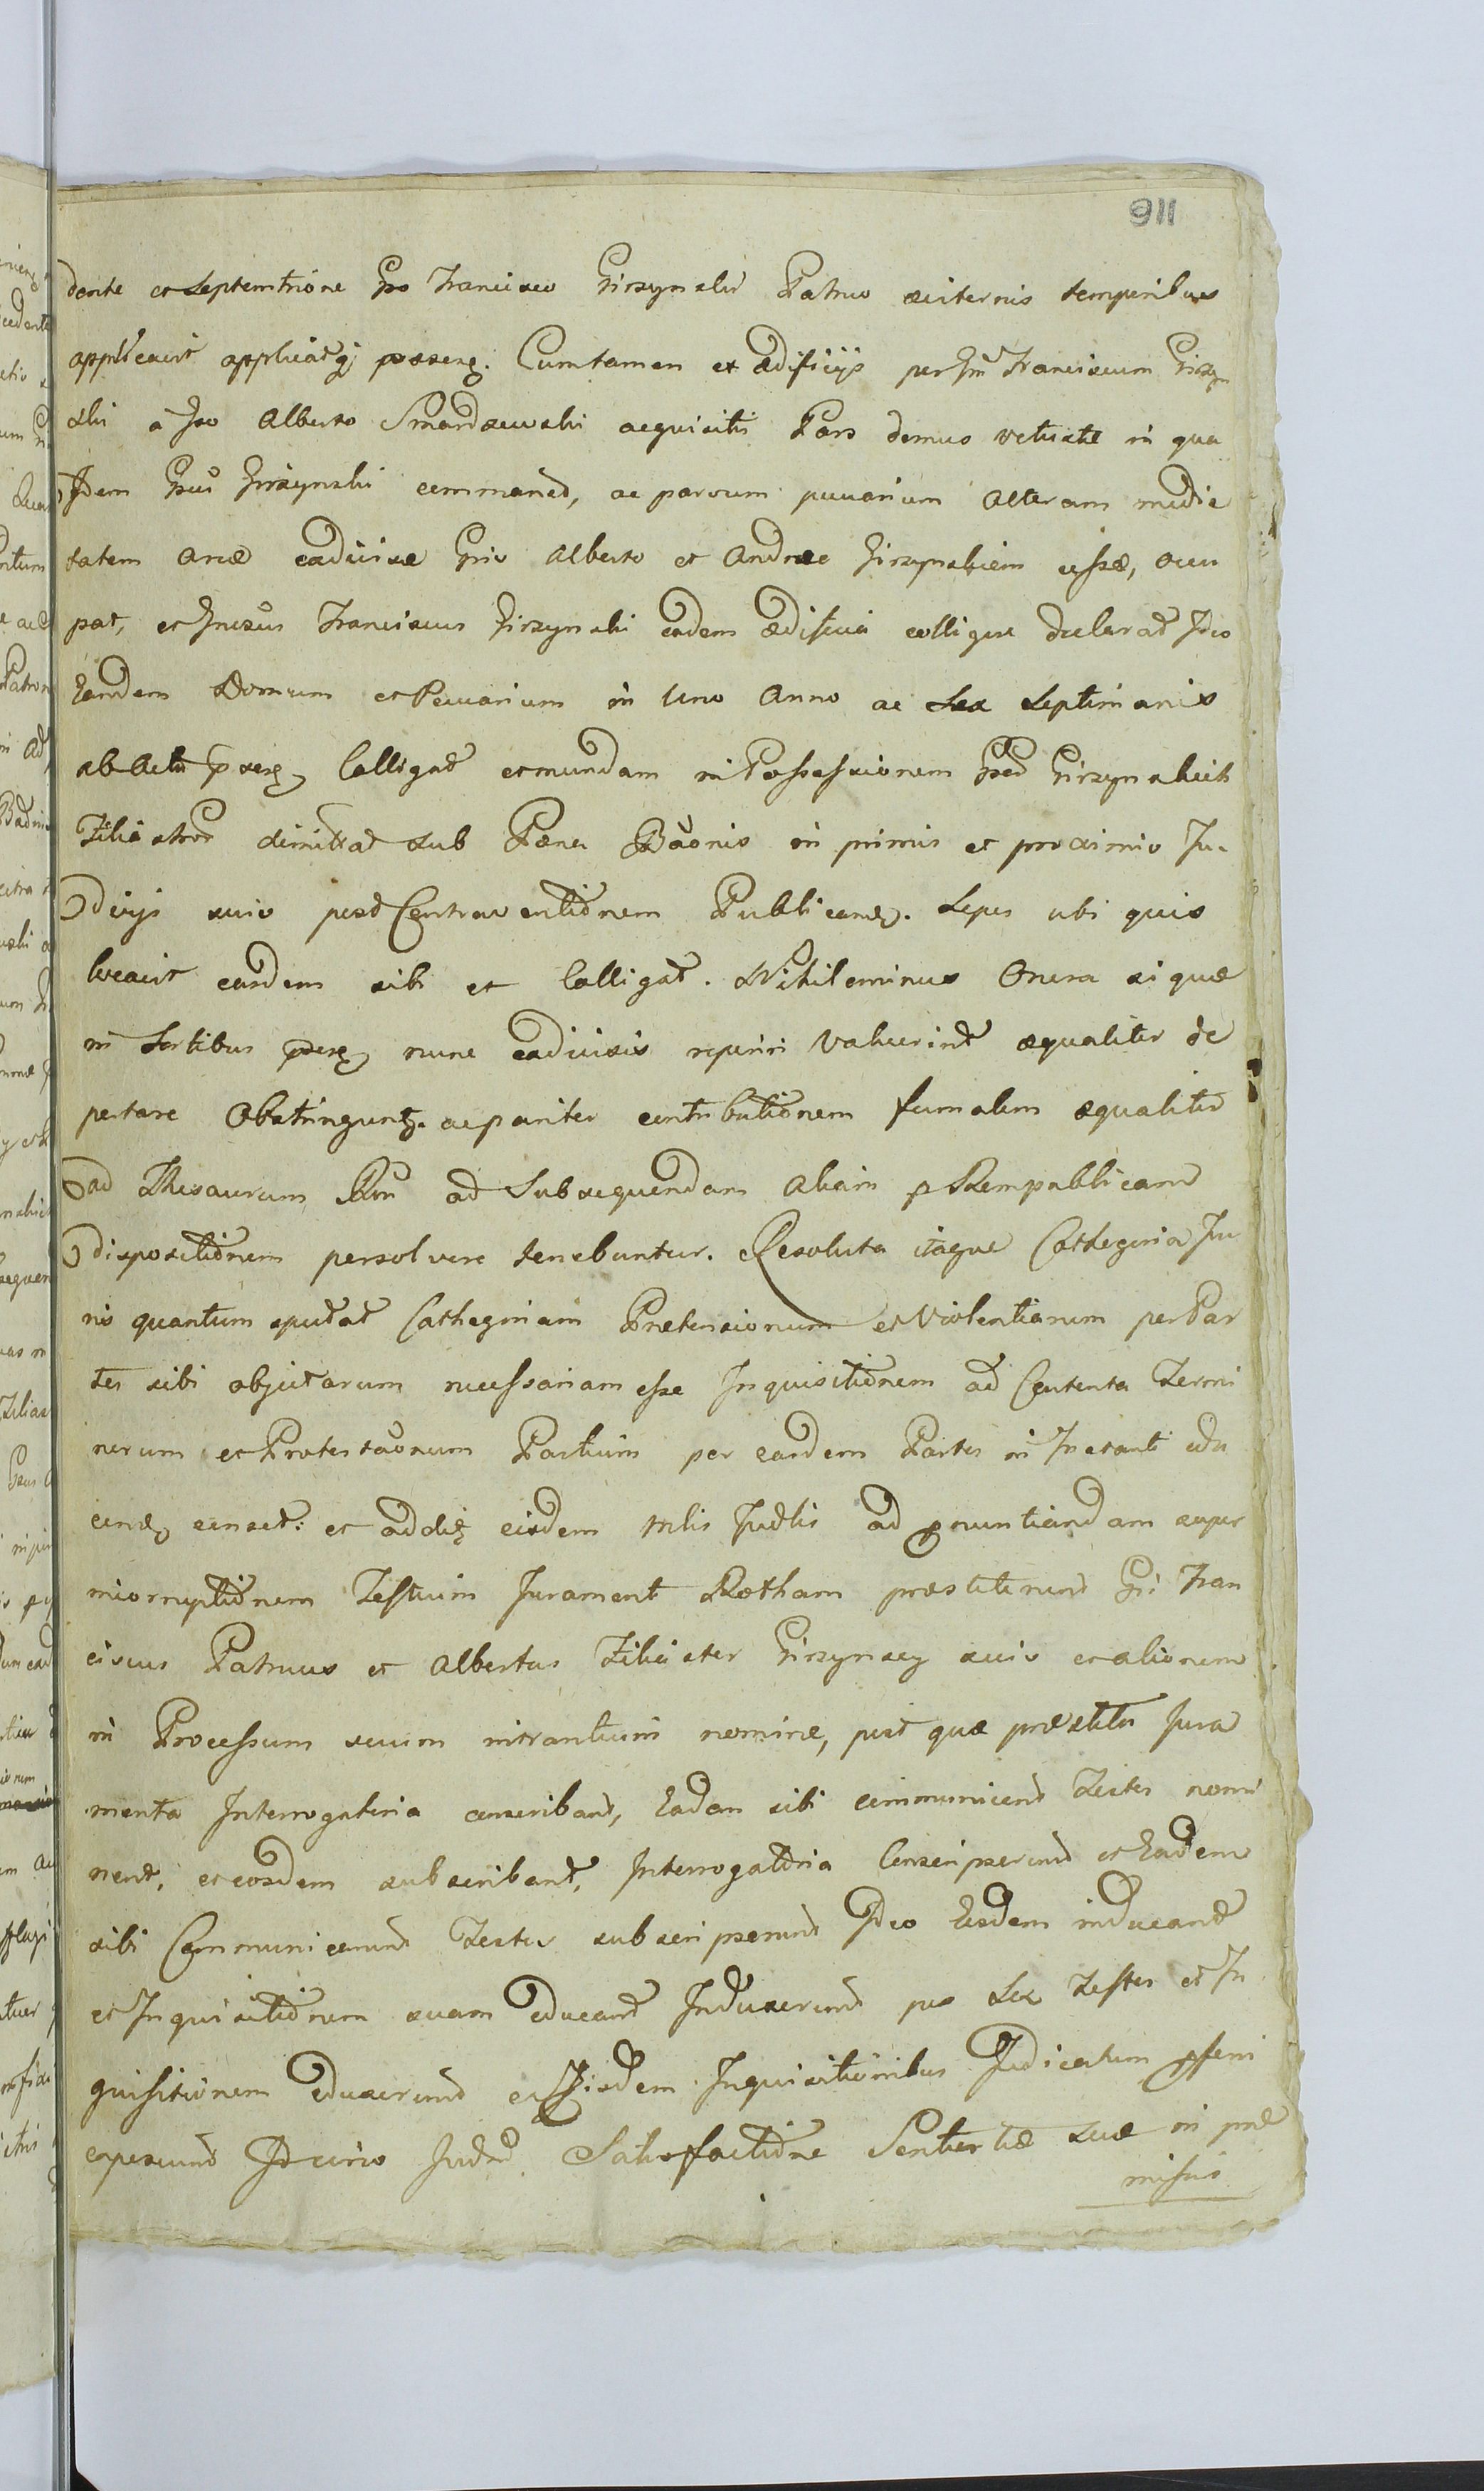 911
dente et Septemtrione Gso Francisco Girzynski Patruo æviternis temporibus
applicavit applicatq; præsens. Cum tamen ex ædificijs per Gsm Franciscum Girzyn
ski à Gso Alberto Smardzewski acquisitis Pars domus vetustæ in qua
Idem Gsus Girzynski commanet, ac parvum pecuarium alteram medie
tatem areæ exdivisæ Gsis Alberto et Andreæ Girzynskiem cessæ, occu
pat, et Gnrosus Franciscus Girzynski eadem ædificia colligere declarat Ideo
Eandem Domum et Pecuarium in Uno Anno ac Sex Septimanis
ab Actu præsen. Colligat et mundam in Possessionem Gsor Girzynskich
Filiastror dimittat sub Pæna Baonis in primis et proximis Ju-
dicijs suis post Contraventionem Publicand. Sepes ubi quis
locavit easdem sibi et Colligat. Nihilominus Onera si quæ
in Sortibus præsen. nunc exdivisis reperiri valuerint æqualiter de
portare Obstringunt. ac pariter contributionem fumalem æqualiter
ad Thesaurum Rni ad Subsequendam aliam p Rempublicam
dispositionem persolvere tenebuntur. Resoluta itaque Cathegoria Ju
ris quantum spectat Cathegoriam Prætensionum et Violentiarum per Par
tes sibi objectarum necessariam esse Inquisitionem ad Contenta Termi
norum et Protestaonum Partium per easdem Partes in Instanti edu
cend censet: et addit eisdem Mlis Judlis ad pnuntiandam super
incorruptionem Testium Jurament Rotham præstiterunt Gsi Fran
ciscus Patruus et Albertus Filiaster Girzynscy suis et aliorum
in Processum suum intrantium nomine, post quæ præstita Jura
menta Interrogatoria conscribant, Eadem sibi communicent Testes nomi
nent, et eosdem subscribant, Interrogatoria Conscripserunt et Eadem
sibi Communicerunt Testes subscripserunt Ideo Eosdem inducant
et Inquisitionem suam educant Induxerunt per Sex Testes et In
quisitionem eduxerunt et Eisdem Inquisitionibus Judicatum pferri
expescunt Idcirco Judm Satisfactione Sententiæ suæ in præ
missis